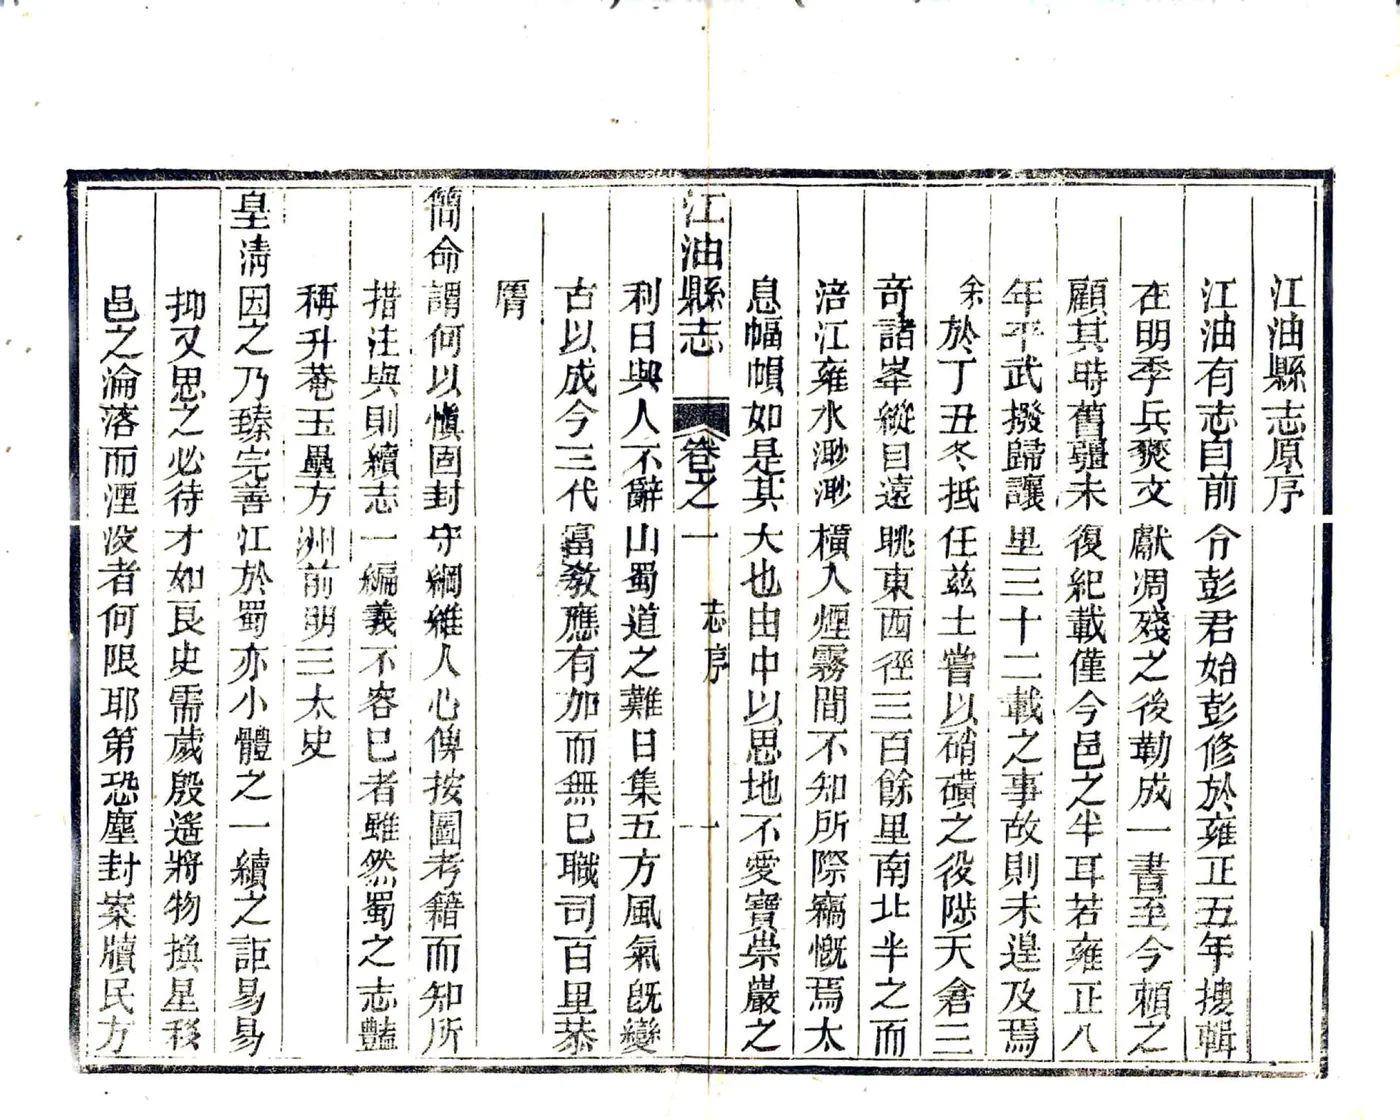 江油縣志原序
江油有志自前令彭君始彭修於雍正五年搜輯
在明季兵燹文獻凋殘之後勒成一書至今賴之
顧其時舊疆未復紀載僅今邑之半耳若雍正八
年平武撥歸讓里三十二載之事故則未遑及焉
余於丁丑冬抵任茲土嘗以硝磺之役陟天倉三
奇諸峯縱目遠眺東西徑三百餘里南北半之而
涪江雍水渺渺橫入煙霧間不知所際竊慨焉太
息幅幀如是其大也由中以思地不愛寶崇巖之
江油縣志 卷之一 志序 一
利日與人不辭山蜀道之難日集五方風氣旣變
古以成今三代富敎應有加而無已職司百里恭
膺
簡命謂何以愼固封守綱維人心俾按圖考籍而知所
措注與則續志一編義不容已者雖然蜀之志豔
稱升菴玉壘方洲前明三太史
皇淸因之乃臻完善江於蜀亦小體之一續之詎易易
抑又思之必待才如良史需歲殷遙將物換星移
邑之淪落而湮沒者何限耶第恐塵封案牘民方